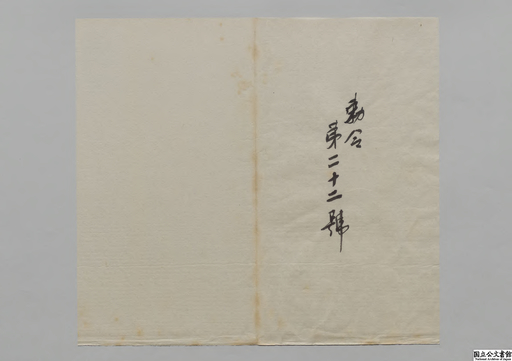 勅令
第二十二號
国立公文書館
National Archives of Japan